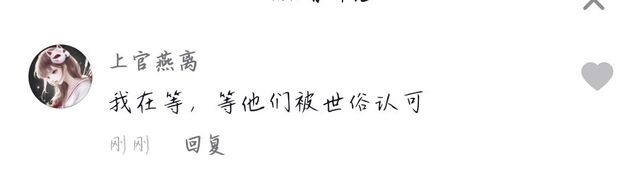 上官燕离
我在等，等他们被世俗认可
刚刚 回复